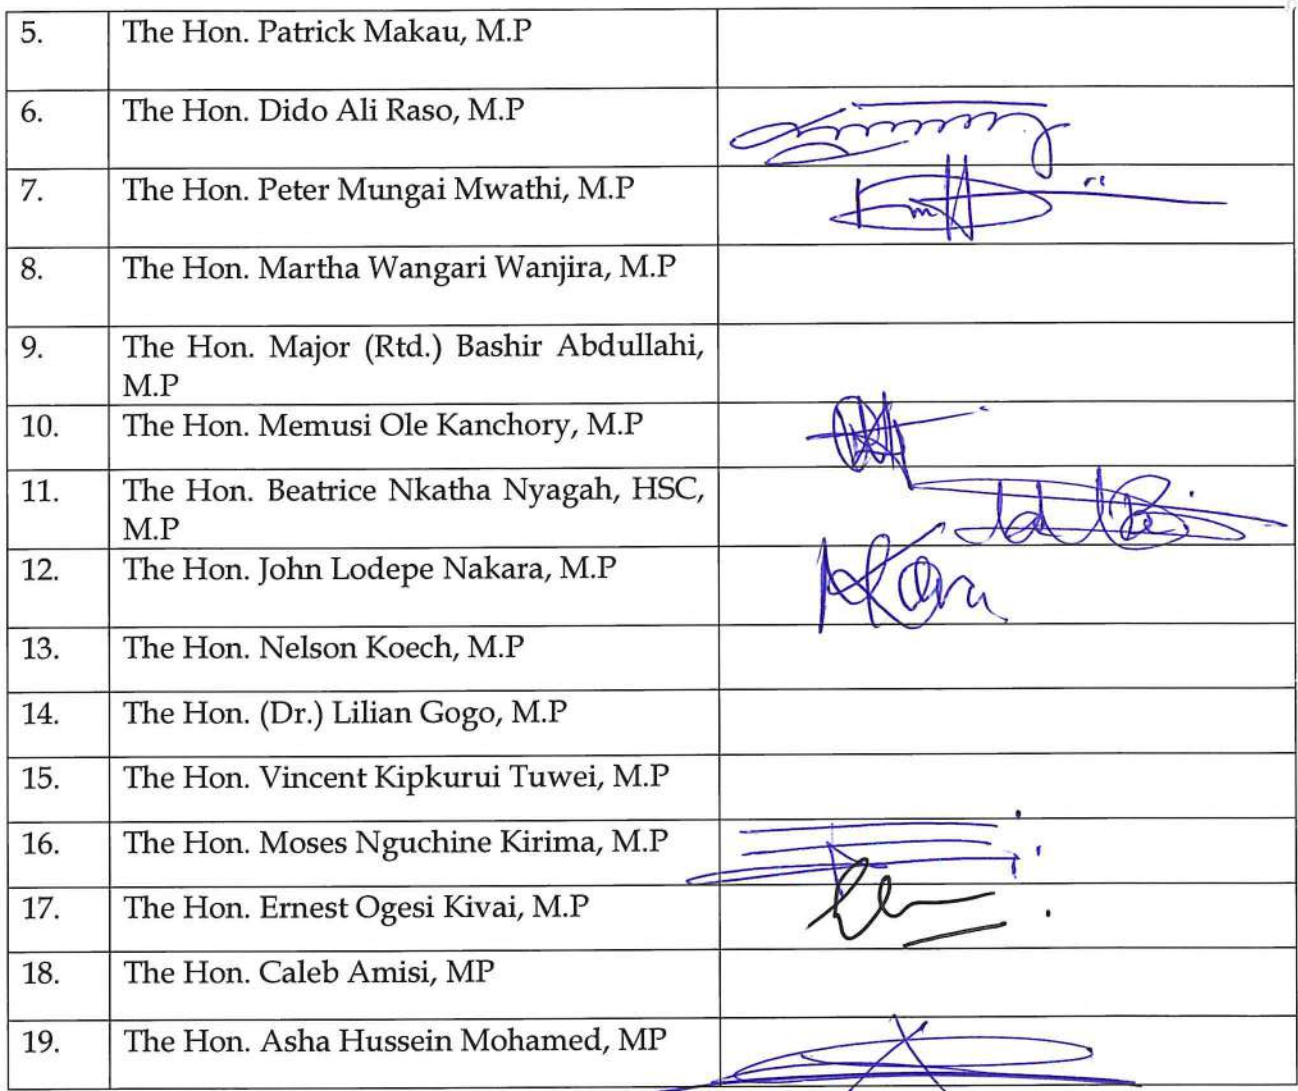 5. The Hon. Patrick Makau, M.P
6. The Hon. Dido Ali Raso, M.P
7. The Hon. Peter Mungai Mwathi, M.P
8. The Hon. Martha Wangari Wanjira, M.P
9. The Hon. Major (Rtd.) Bashir Abdullahi,
M.P
10. The Hon. Memusi Ole Kanchory, M.P
11. The Hon. Beatrice Nkatha Nyagah, HSC,
M.P
12. The Hon. John Lodepe Nakara, M.P
13. The Hon. Nelson Koech, M.P
14. The Hon. (Dr.) Lilian Gogo, M.P
15. The Hon. Vincent Kipkurui Tuwei, M.P
16. The Hon. Moses Nguchine Kirima, M.P
17. The Hon. Ernest Ogesi Kivai, M.P
18. The Hon. Caleb Amisi, MP
19. The Hon. Asha Hussein Mohamed, MP